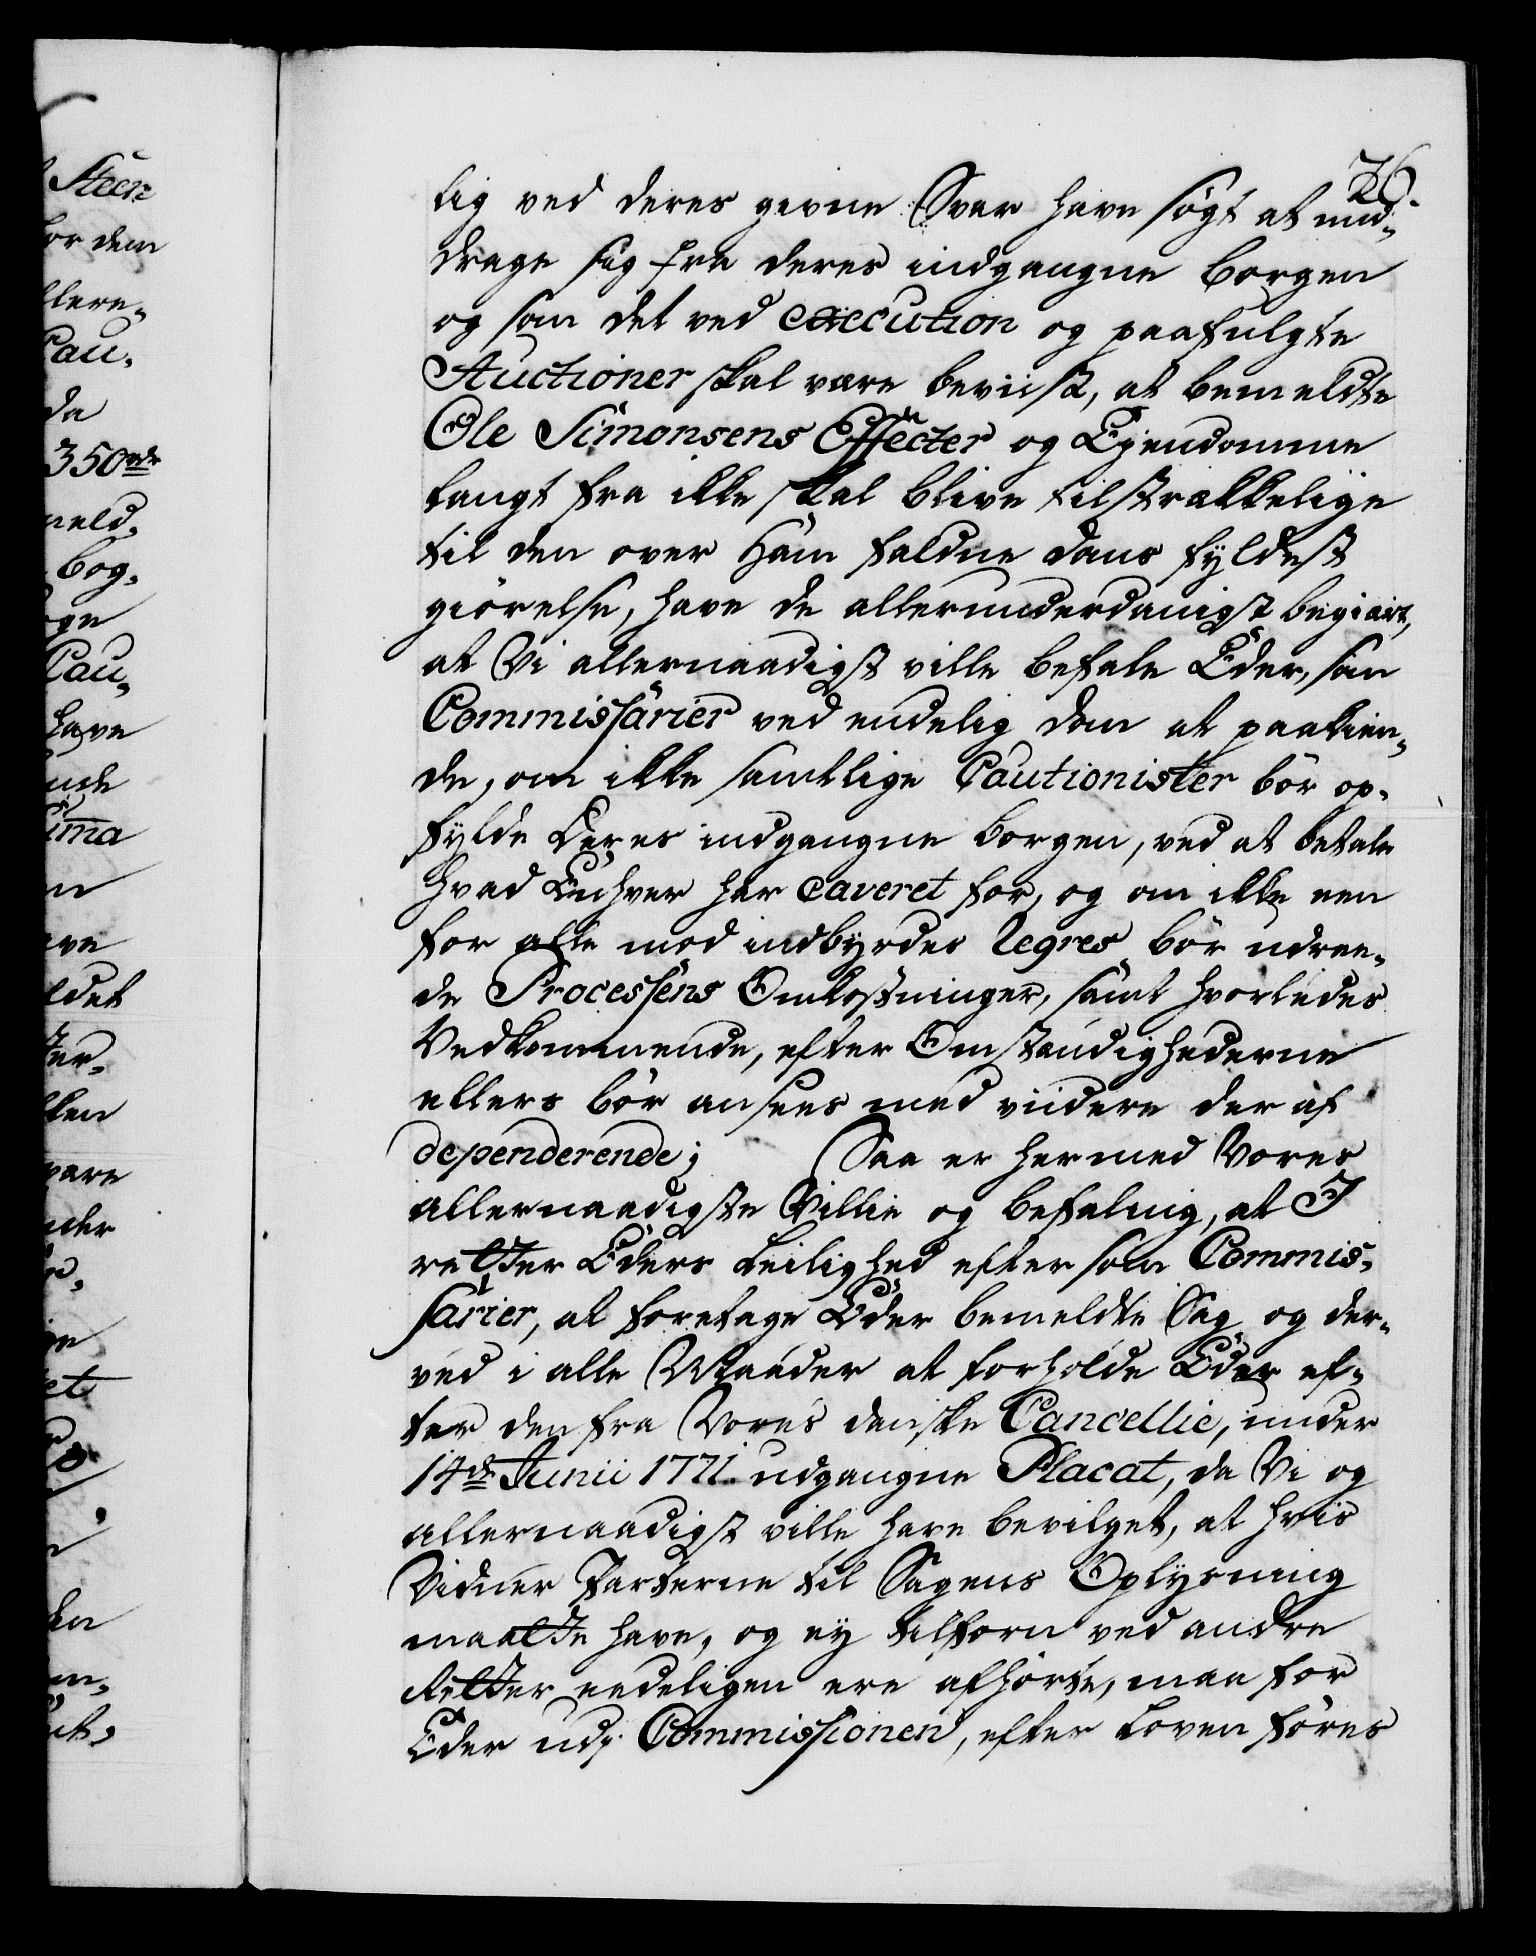 26.
tig ved deres givne Svar have søgt at und-
drage sig fra deres indgangne borgen
og som det ved execution og paafulgte
Auctioner skal være beviist, at bemeldte
Ole Simonsens Effecter og Eyendomme
langt fra ikke skal blive tilstrækkelige
til den over Ham faldne Doms fyldest
giörelse, have de allerunderdanigst begiært,
at Vi allernaadigst ville befale Eder, som
Commissarier ved endelig dom at paakien-
de, om ikke samtlige Cautionister bör op-
fylde Deres indgangne borgen, ved at betale
hvad Enhver har caveret for, og om ikke een
for alle mod indbyrdes Regres bör udree-
de Processens Omkostninger, samt hvorledes
Vedkommende, efter Omstændighederne
ellers bör ansees med viidere der af
dependerende; Saa er hermed Vores
allernaadigste Villie og befaling, at I
retter Eders Leilighed efter som Commis-
sarier, at foretage Eder bemeldte Sag og der-
ved i alle Maader at forholde Eder ef-
ter den fra Vores danske Cancellie, under
14de Junii 1771 udgangne Placat, da Vi og
allernaadigst ville have bevilget, at hvis
Vidner Parterne til Sagens Oplysning
maatte have, og ey tilforn ved andre
Retter eedeligen ere afhörte, maa for
Eder udj Commissionen, efter Loven föres
Steen
for dem
llere-
Cau-
da
350rdr
meld-
bog-
Cau-
have